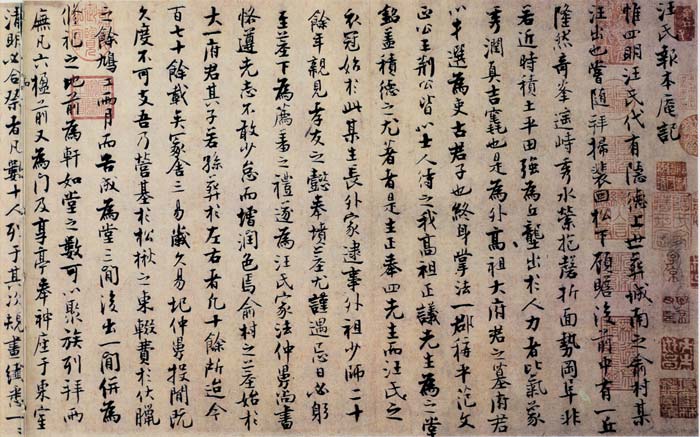 汪氏報本庵記
惟四明汪氏代有隱德上世葬城南之俞村某
汪出也嘗隨拜掃裴回松下顧瞻後前中有一丘
隆然奇峯遥峙秀水縈抱磬折面勢岡阜非
若近時積土平田強為丘壟出於人力者比氣象
秀潤真吉竁也是為外高祖大府君之墓府君
以才選為吏古君子也終身掌法一郡稱平范文
正公王荊公皆以士人待之我高祖正議先生為之堂
銘蓋積德之尤著者是生正奉四先生而汪氏之
衣冠始於此某生長外家逮事外祖少師二十
餘年親見孝友之懿奉墳墓尤謹遇忌日必躬
至墓下為薦羞之禮遂為汪氏家法仲舅尚書
恪遵先志不敢少怠而增潤色焉俞村之墓始於
大一府君其子若孫葬於左右者凡十餘所迨今
百七十餘載矣家舍三易歲久易圮仲舅投閒既
久度不可支吾乃營基於松楸之東輟費於伏臘
之餘鳩工兩月而告成為堂三間後出一間併為
修祀之地前為軒如堂之數可以聚族列拜兩
廡凡六楹前又為門及享亭奉神座于東室
清明必合祭者凡數十人列于其次規畫纖悉一一